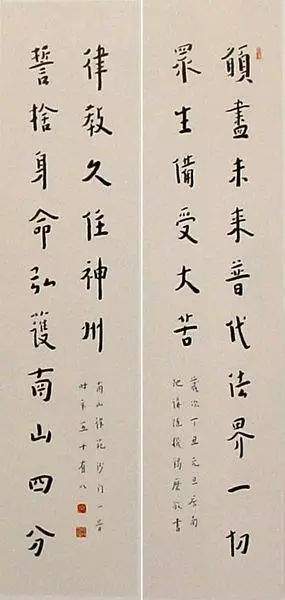 願盡未来普代法界一切
眾生備受大苦
歲次丁丑元旦南
講隨機羯磨敬書
誓捨身命弘護南山四分
律教久住神州
南山律苑沙門一音
時年五十有八